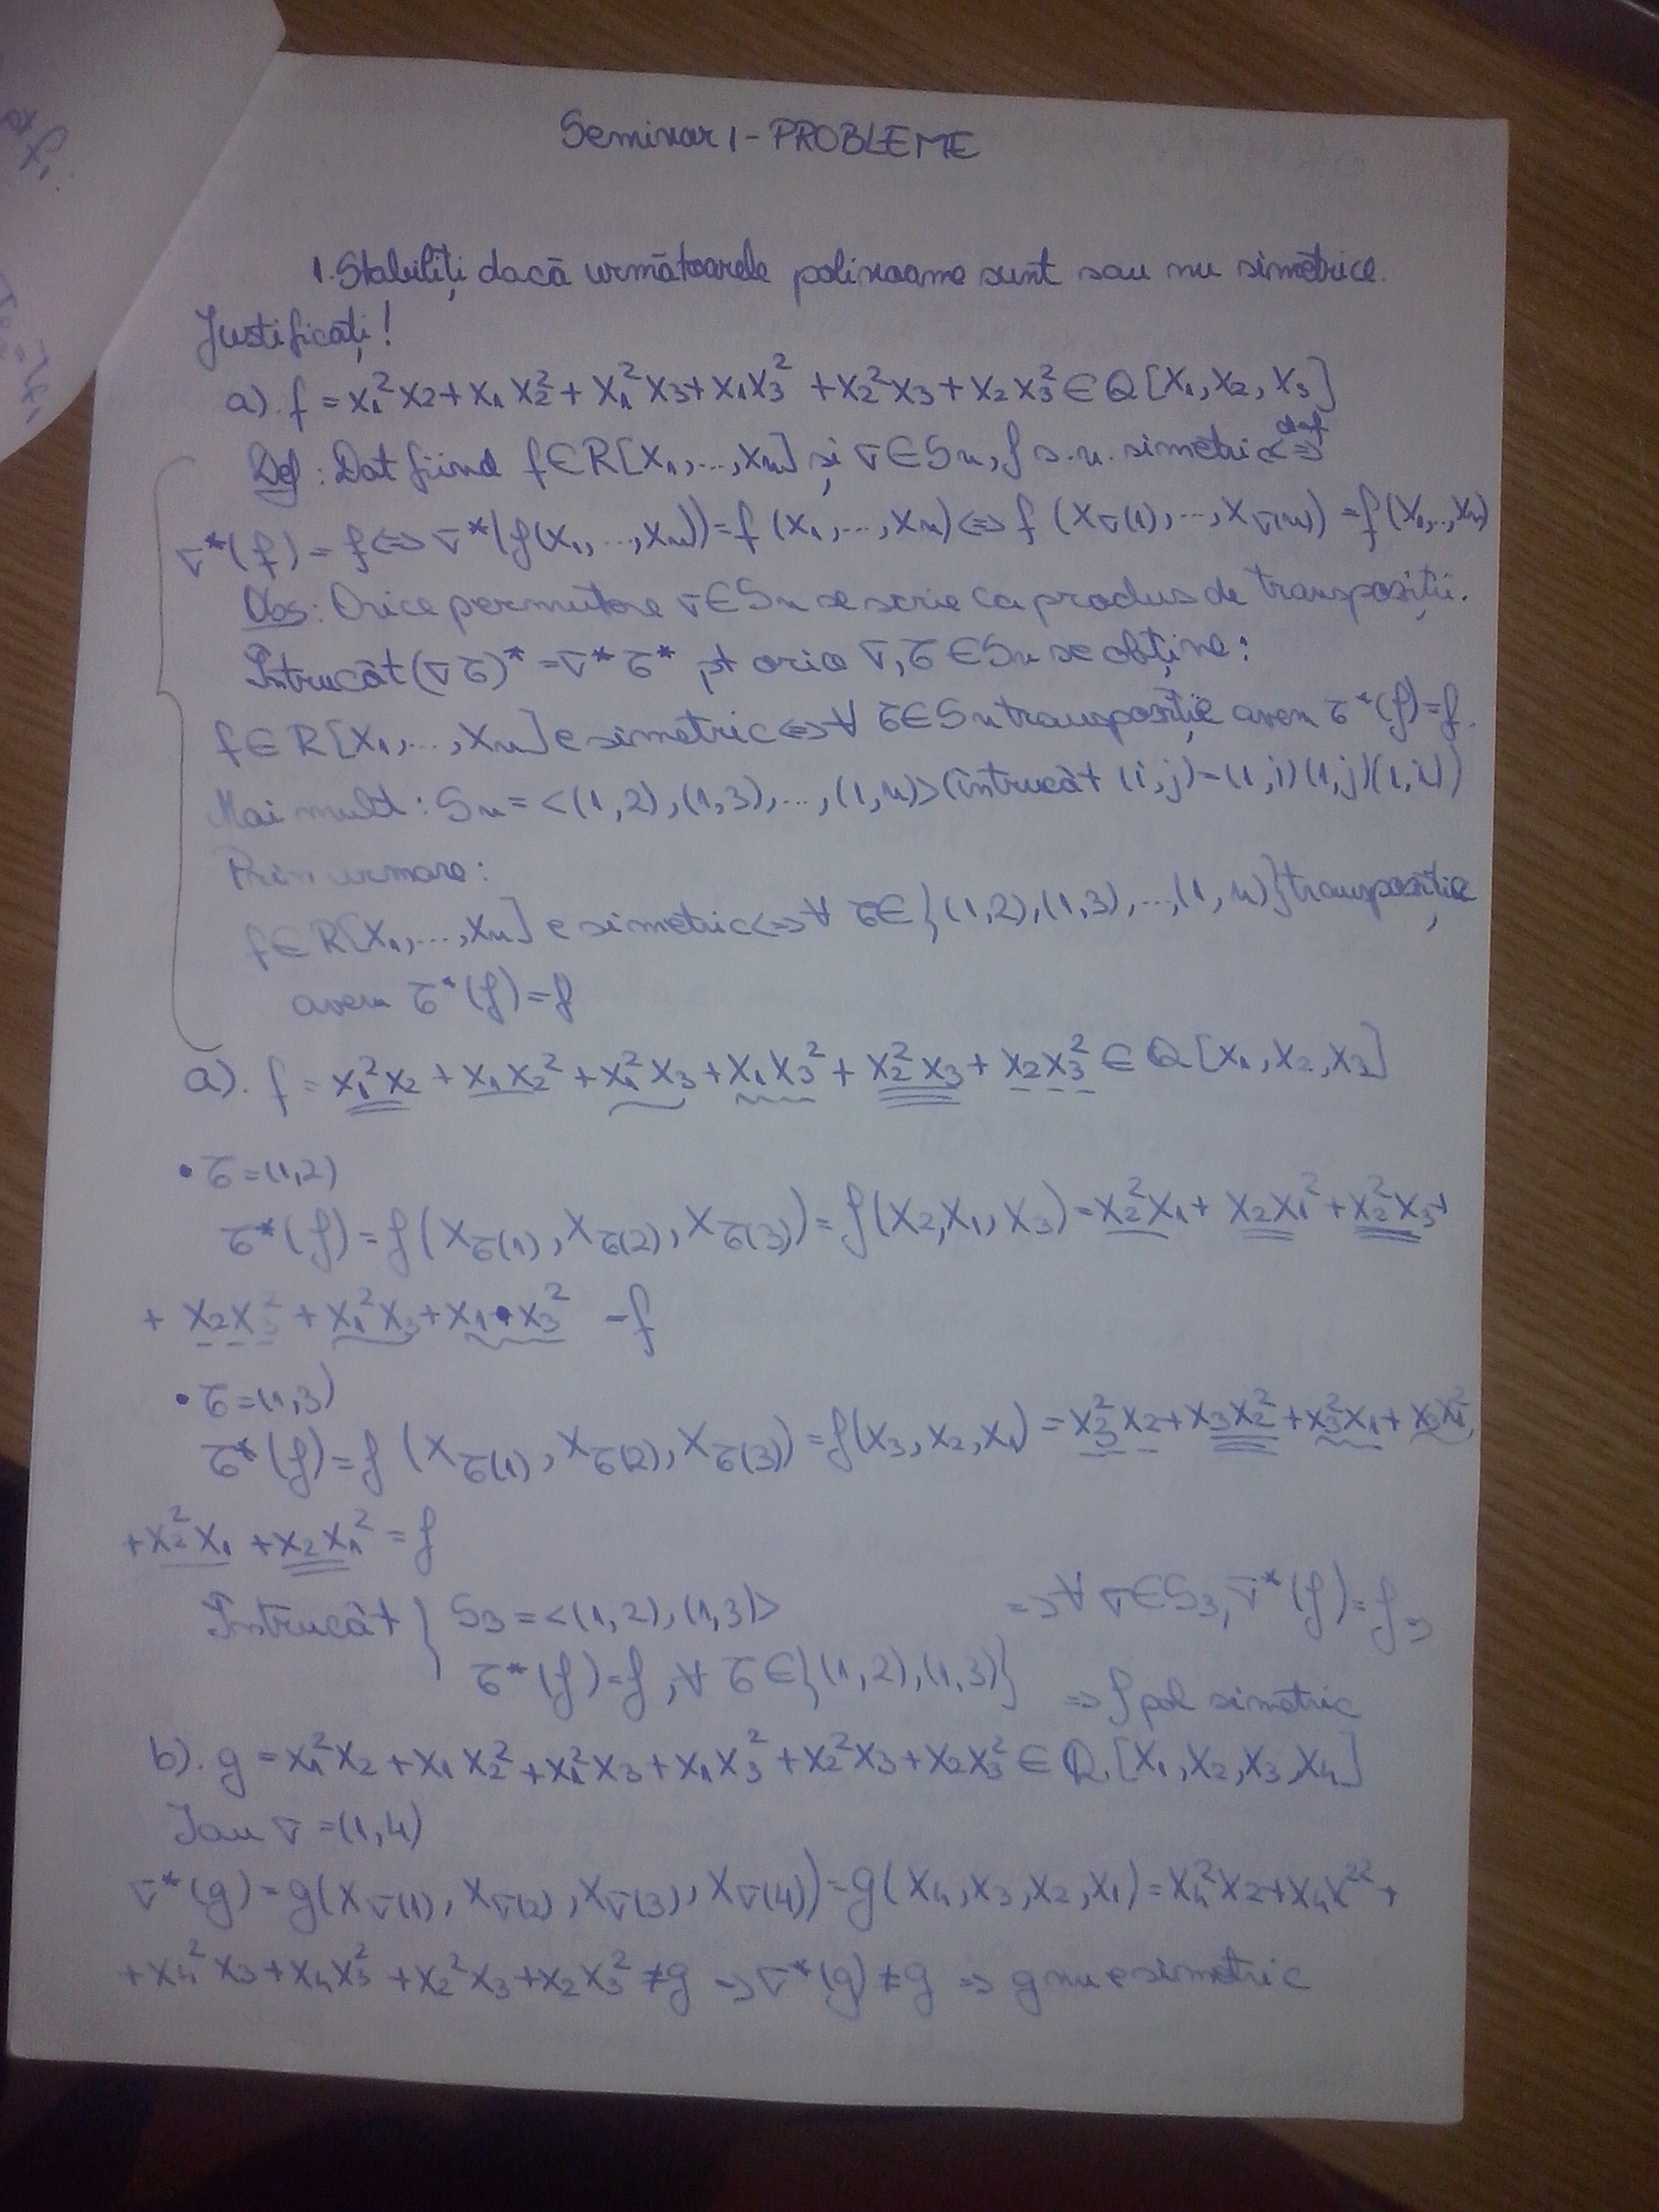 Seminar 1 - PROBLEME
1. Stabiliți dacă următoarele polinoame sunt sau nu simetrice.
Justificați!
a). f = x₁²x₂ + x₁x₂² + x₁²x₃ + x₁x₃² + x₂²x₃ + x₂x₃² ∈ Q[x₁, x₂, x₃]
Def: Dat fiind f∈R[x₁,...,xₙ] și σ∈Sₙ, f s.n. simetric ⇔ def
σ*(f) = f ⇔ σ*(f(x₁,...,xₙ)) = f(x₁,...,xₙ) ⇔ f(x_σ(1),...,x_σ(n)) = f(x₁,..,xₙ)
Obs: Orice permutare σ∈Sₙ se scrie ca produs de transpoziții.
Întrucât (στ)* = σ*τ* pt orice σ,τ∈Sₙ se obține:
f∈R[x₁,...,xₙ] e simetric ⇔ ∀ τ∈Sₙ transpoziție avem τ*(f)=f.
Mai mult: Sₙ = <(1,2),(1,3),...,(1,n)> (întrucât (i,j) = (1,i)(1,j)(1,i))
Prin urmare:
f∈R[x₁,...,xₙ] e simetric ⇔ ∀ τ∈{(1,2),(1,3),...,(1,n)} transpoziție
avem τ*(f)=f
a). f = x₁²x₂ + x₁x₂² + x₁²x₃ + x₁x₃² + x₂²x₃ + x₂x₃² ∈ Q[x₁,x₂,x₃]
• τ=(1,2)
τ*(f) = f(x_τ(1), x_τ(2), x_τ(3)) = f(x₂,x₁,x₃) = x₂²x₁ + x₂x₁² + x₂²x₃ +
+ x₂x₃² + x₁²x₃ + x₁•x₃² = f
• τ=(1,3)
τ*(f) = f(x_τ(1), x_τ(2), x_τ(3)) = f(x₃,x₂,x₁) = x₃²x₂ + x₃x₂² + x₃²x₁ + x₃x₁²
+ x₂²x₁ + x₂x₁² = f
Întrucât { S₃ = <(1,2),(1,3)> => ∀ σ∈S₃, σ*(f)=f =>
τ*(f)=f, ∀ τ∈{(1,2),(1,3)} => f pol simetric
b). g = x₁²x₂ + x₁x₂² + x₁²x₃ + x₁x₃² + x₂²x₃ + x₂x₃² ∈ Q[x₁,x₂,x₃,x₄]
Iau σ=(1,4)
σ*(g) = g(x_σ(1), x_σ(2), x_σ(3), x_σ(4)) = g(x₄,x₃,x₂,x₁) = x₄²x₂ + x₄x²² +
+ x₄²x₃ + x₄x₃² + x₂²x₃ + x₂x₃² ≠ g => σ*(g) ≠ g => g nu e simetric